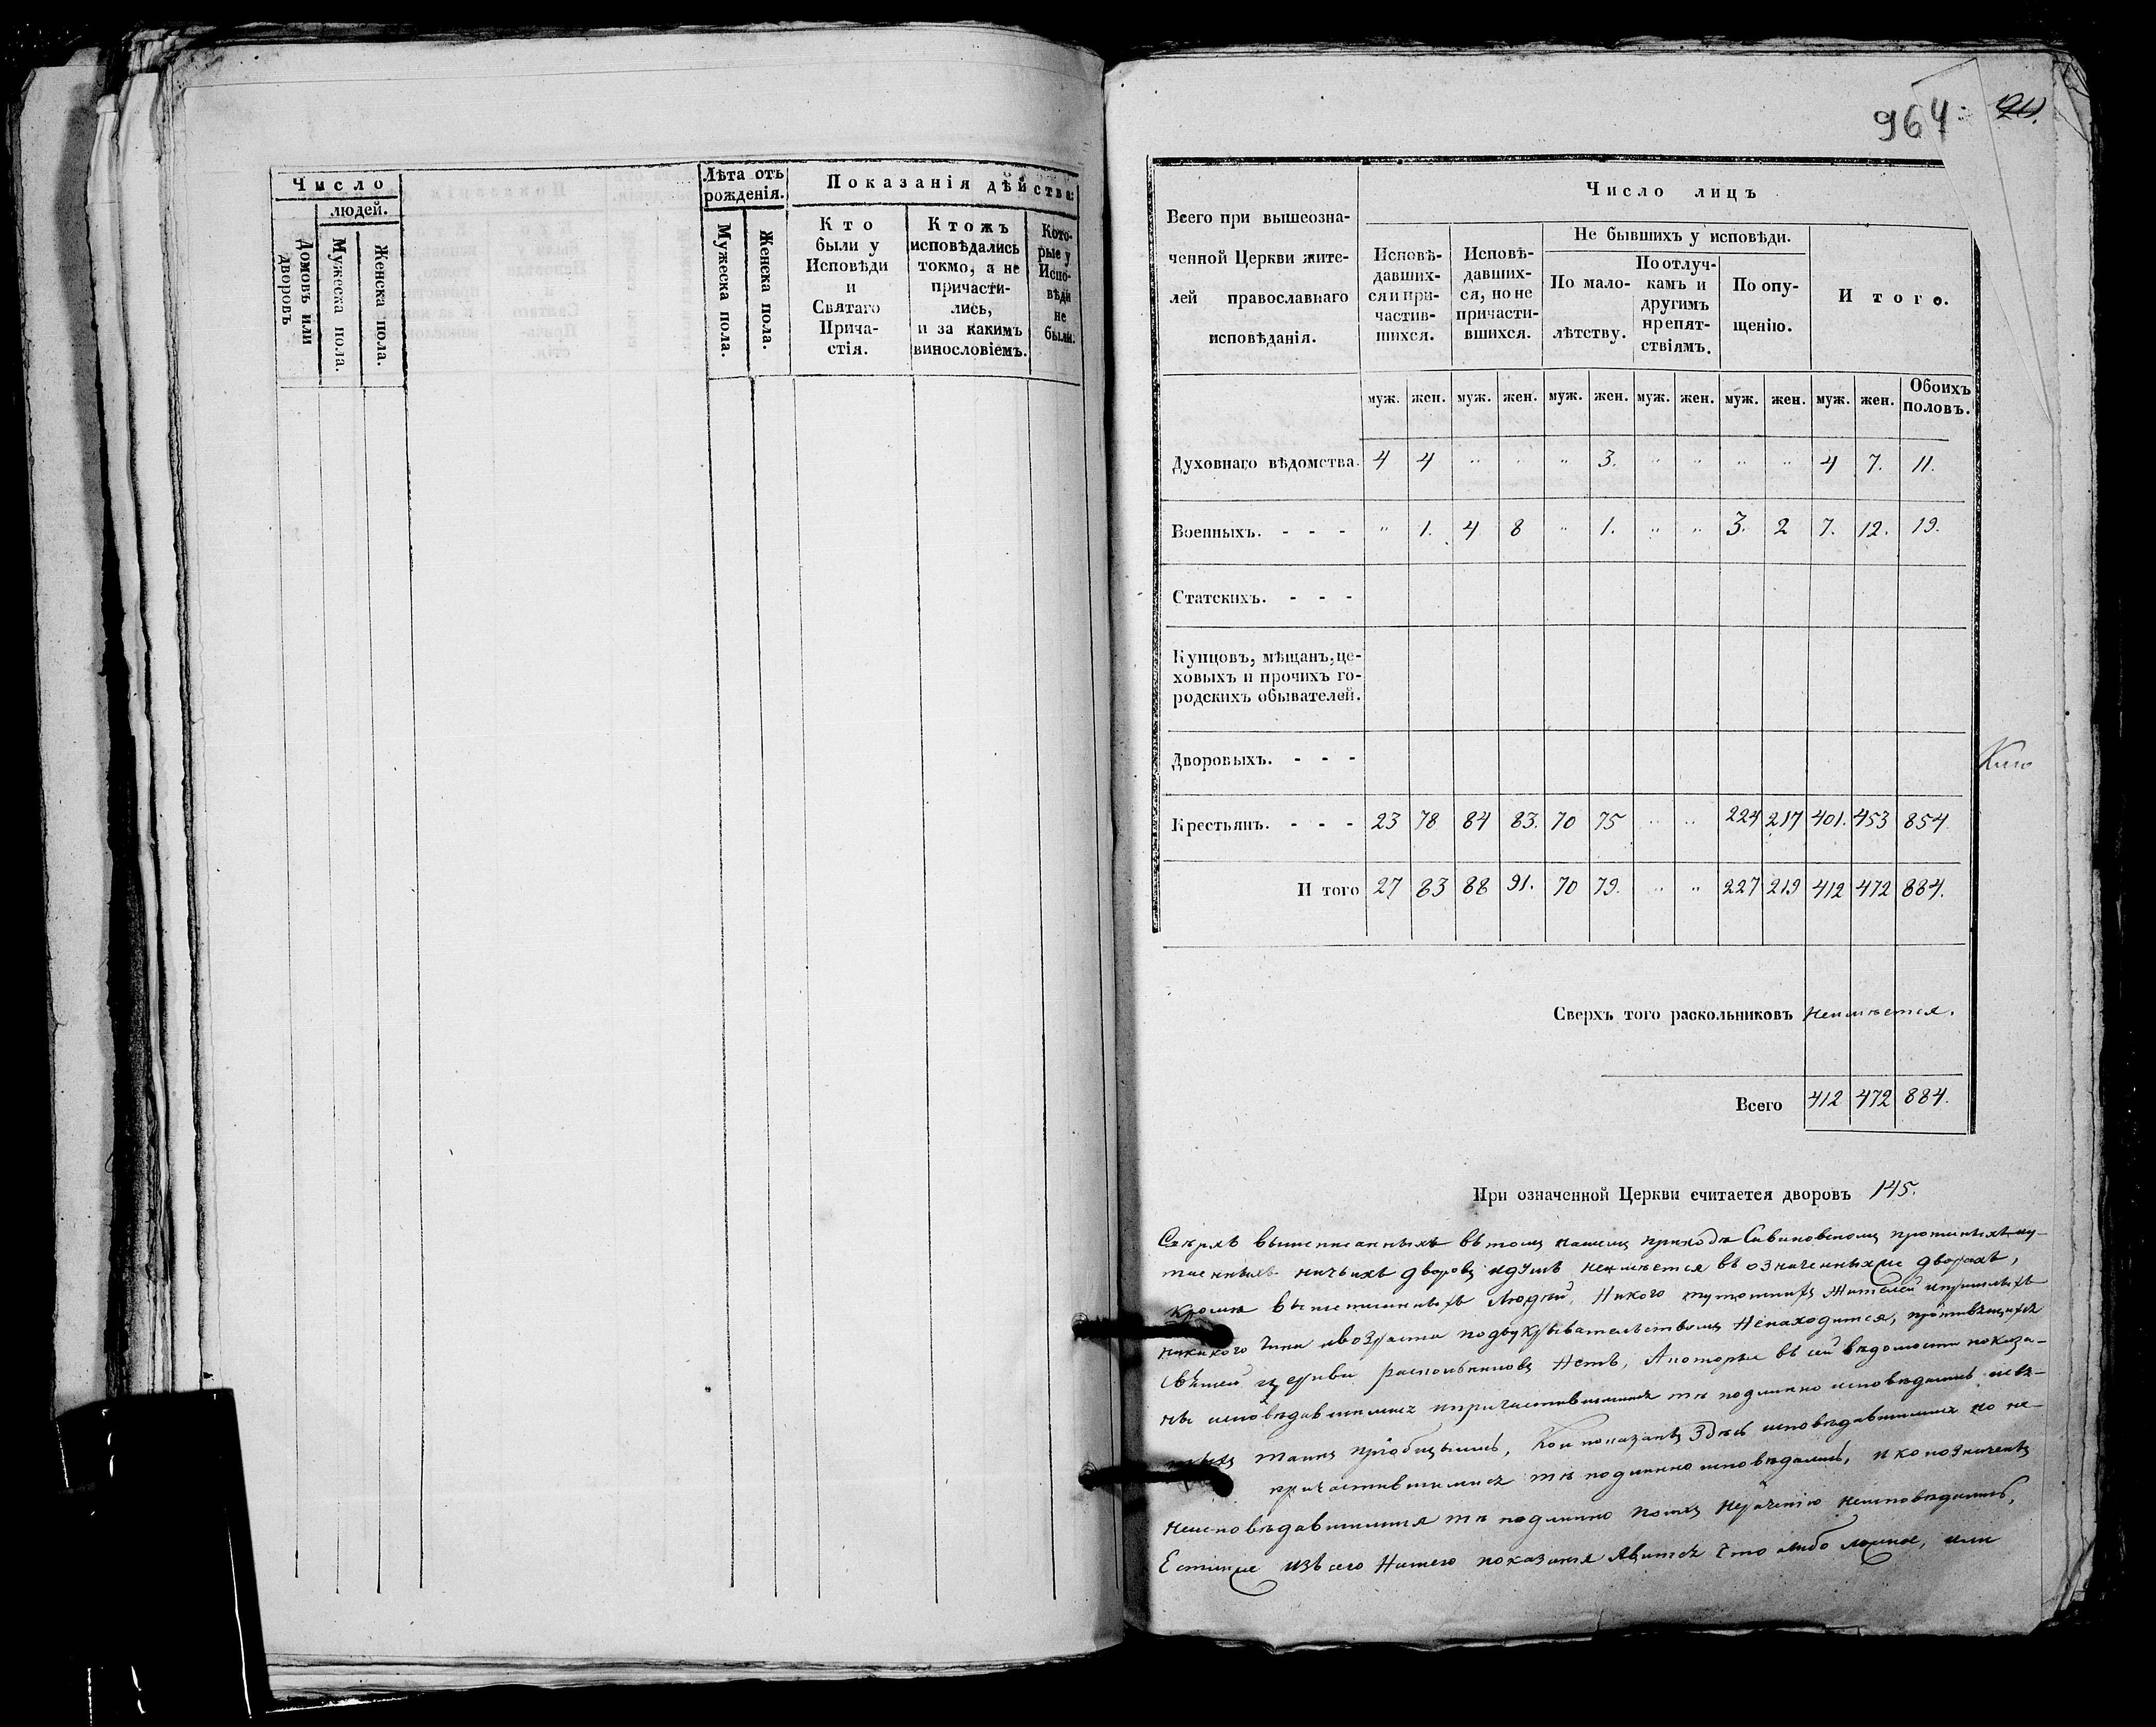 Число
людей.
Домовъ или дворовъ
Мужеска пола.
Женска пола.
Лѣта отъ рожденія.
Мужеска пола.
Женска пола.
Показанія дѣйства:
Кто
были у
Исповѣди
и
Святаго
Прича-
стія.
Ктожъ
исповѣдались
токмо, а не
причасти-
лись,
и за какимъ
винословіемъ.
Кото-
рые у
Испо-
вѣди
не
были.
964
Всего при вышеозна-
ченной Церкви жите-
лей православнаго
исповѣданія.
Число лицъ
Исповѣ-
давших-
ся и при-
частив-
шихся.
Исповѣ-
давших-
ся, но не
причасти-
вшихся.
Не бывшихъ у исповѣди.
По мало-
лѣтству.
По отлуч-
камъ и
другимъ
препят-
ствіямъ.
По опу-
щенію.
И того.
муж. жен. муж. жен. муж. жен. муж. жен. муж. жен. муж. жен. Обоихъ половъ.
Духовнаго вѣдомства. 4 4 " " " 3. " " " " 4 7. 11.
Военныхъ. - - - " 1. 4 8 " 1. " " 3. 2 7. 12. 19.
Статскихъ. - - -
Купцовъ, мѣщанъ, це-
ховыхъ и прочихъ го-
родскихъ обывателей.
Дворовыхъ. - - -
Крестьянъ. - - - 23 78 84 83. 70 75 " " 224 217 401. 453 854.
И того 27 83 88 91. 70 79. " " 227 219 412 472 884.
Сверхъ того раскольниковъ неимѣется.
Всего 412 472 884.
При означенной Церкви считается дворовъ 145.
Сверхъ вышеписанныхъ въ томъ нашемъ приходѣ
ничьихъ дворовъ и душъ неимѣется въ означенныхже дворахъ,
кромѣ людей, никого жителей
никакого чина и возраста подъ укрывательствомъ ненаходится,
церкви раскольниковъ нетъ, а которые въ сей вѣдомости показа-
ны исповѣдавшимися и причастившимися тѣ подлинно исповѣдались и свя-
таинъ пріобщились, кои показаны здесь исповѣдавшимися но не-
причастившимися тѣ подлинно исповѣдались, и кои означены
неисповѣдавшимися тѣ подлинно нераченію неисповѣдались,
Естлиже изъ сего нашего показанія явится что либо ложное, или